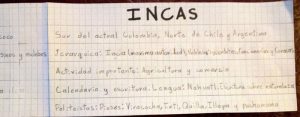 INCAS
Sur del actual Colombia, Norte de Chile y Argentina
Jerarquica: Inca (maxima autoridad),
Actividad importante: Agricultura y comercio
Calendario y escritura. Lengua: Nahuatl. Escritura sobre
Politeistas: Dioses: Viracocha, Inti, Quilla, Illapa y pachamama